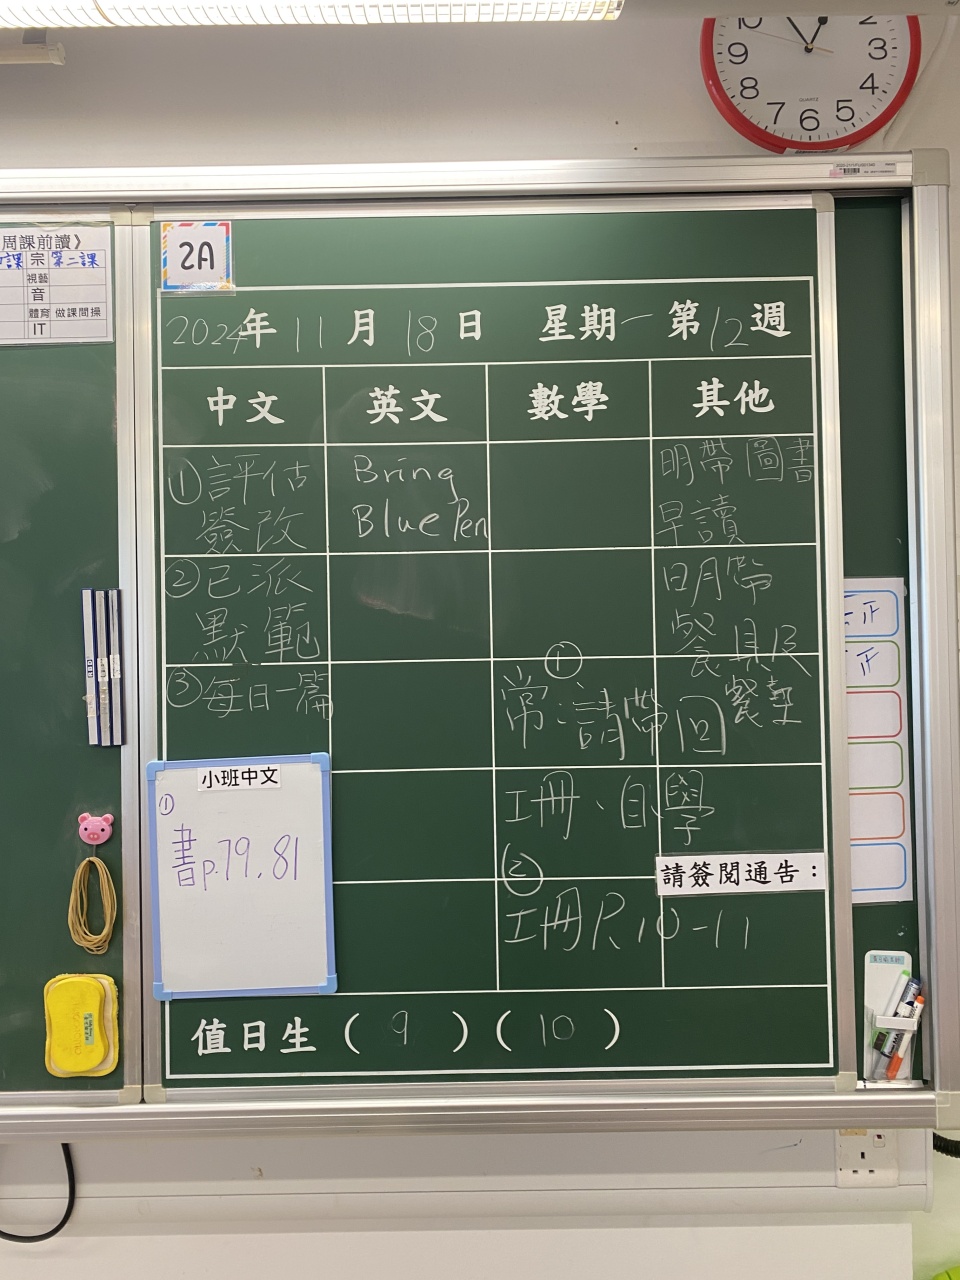 10
2
9
3
8
4
7
6
5
QUARTZ
周課前讀》
課 宗 第二課
視藝
音
體育 做課間操
IT
2A
2024年 11 月 18 日 星期一 第12週
中文 英文 數學 其他
①評估
簽改
②已派
默範
③每日一篇
Bring
Blue Pen
①
常:請帶回
工冊、自學
②
工冊P.10-11
明帶圖書
早讀
明帶
餐具及
餐墊
請簽閱通告：
小班中文
①
書p.79,81
值日生（ 9 ）（ 10 ）
正
正